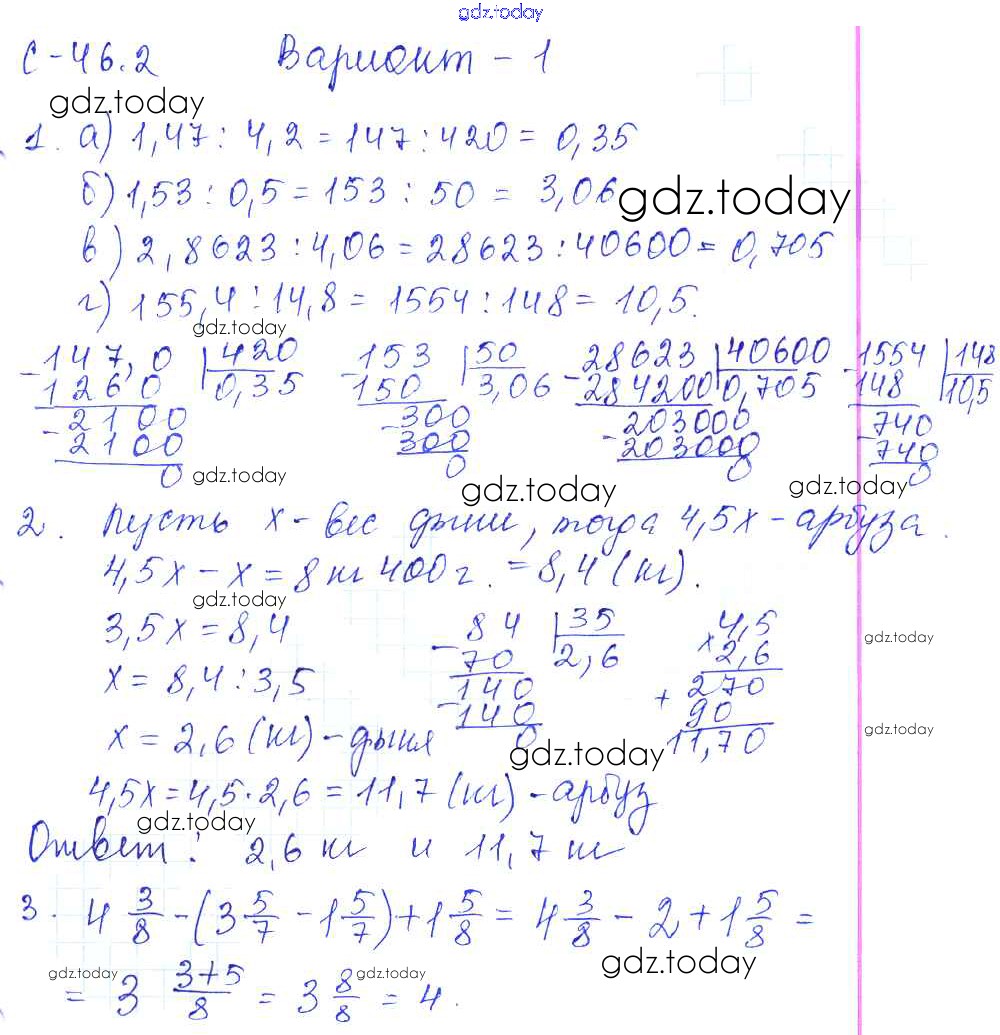 gdz.today
С-46.2 Вариант - 1
gdz.today
1. а) 1,47 : 4,2 = 147 : 420 = 0,35
б) 1,53 : 0,5 = 153 : 50 = 3,06 gdz.today
в) 2,8623 : 4,06 = 28623 : 40600 = 0,705
г) 155,4 : 14,8 = 1554 : 148 = 10,5.
gdz.today
-147,0 |420 -153 |50 -28623 |40600 -1554 |148
1260 0,35 150 3,06 284200 0,705 148 10,5
-2100 -300 -203000 -740
2100 300 203000 740
0 gdz.today 0 gdz.today 0 gdz.today 0
2. Пусть х - вес дыни, тогда 4,5х - арбуза.
4,5х - х = 8 кг 400 г. = 8,4 (кг).
gdz.today
3,5х = 8,4 -84 |35 ×4,5 gdz.today
70 2,6 2,6
х = 8,4 : 3,5 -140 +270
140 90
х = 2,6 (кг) - дыня 0 gdz.today 11,70 gdz.today
4,5х = 4,5 · 2,6 = 11,7 (кг) - арбуз
gdz.today
Ответ: 2,6 кг и 11,7 кг
3. 4 3/8 - (3 5/7 - 1 5/7) + 1 5/8 = 4 3/8 - 2 + 1 5/8 =
gdz.today gdz.today gdz.today
= 3 3+5/8 = 3 8/8 = 4.